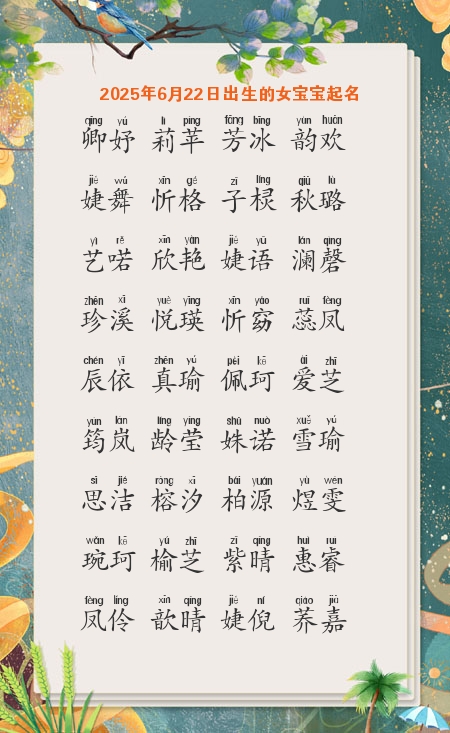 2025年6月22日出生的女宝宝起名
qīng yú lì píng fāng bīng yùn huān
卿妤 莉苹 芳冰 韵欢
jié wǔ xīn gé zǐ líng qiū lù
婕舞 忻格 子棂 秋璐
yì rě xīn yàn jié yǔ lán qìng
艺喏 欣艳 婕语 澜磬
zhēn xī yuè yīng xīn yǎo ruǐ fèng
珍溪 悦瑛 忻窈 蕊凤
chén yī zhēn yú pèi kē ài zhī
辰依 真瑜 佩珂 爱芝
yún lán líng yíng shū nuò xuě yú
筠岚 龄莹 姝诺 雪瑜
sī jié róng xī bǎi yuán yù wén
思洁 榕汐 柏源 煜雯
wǎn kē yú zhī zǐ qíng huì ruì
琬珂 榆芝 紫晴 惠睿
fèng líng xīn qíng jié ní qiáo jiā
凤伶 歆晴 婕倪 荞嘉